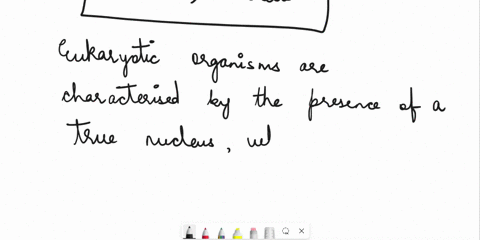 Eukaryotic organisms are
characterised by the presence of a
true nucleus,